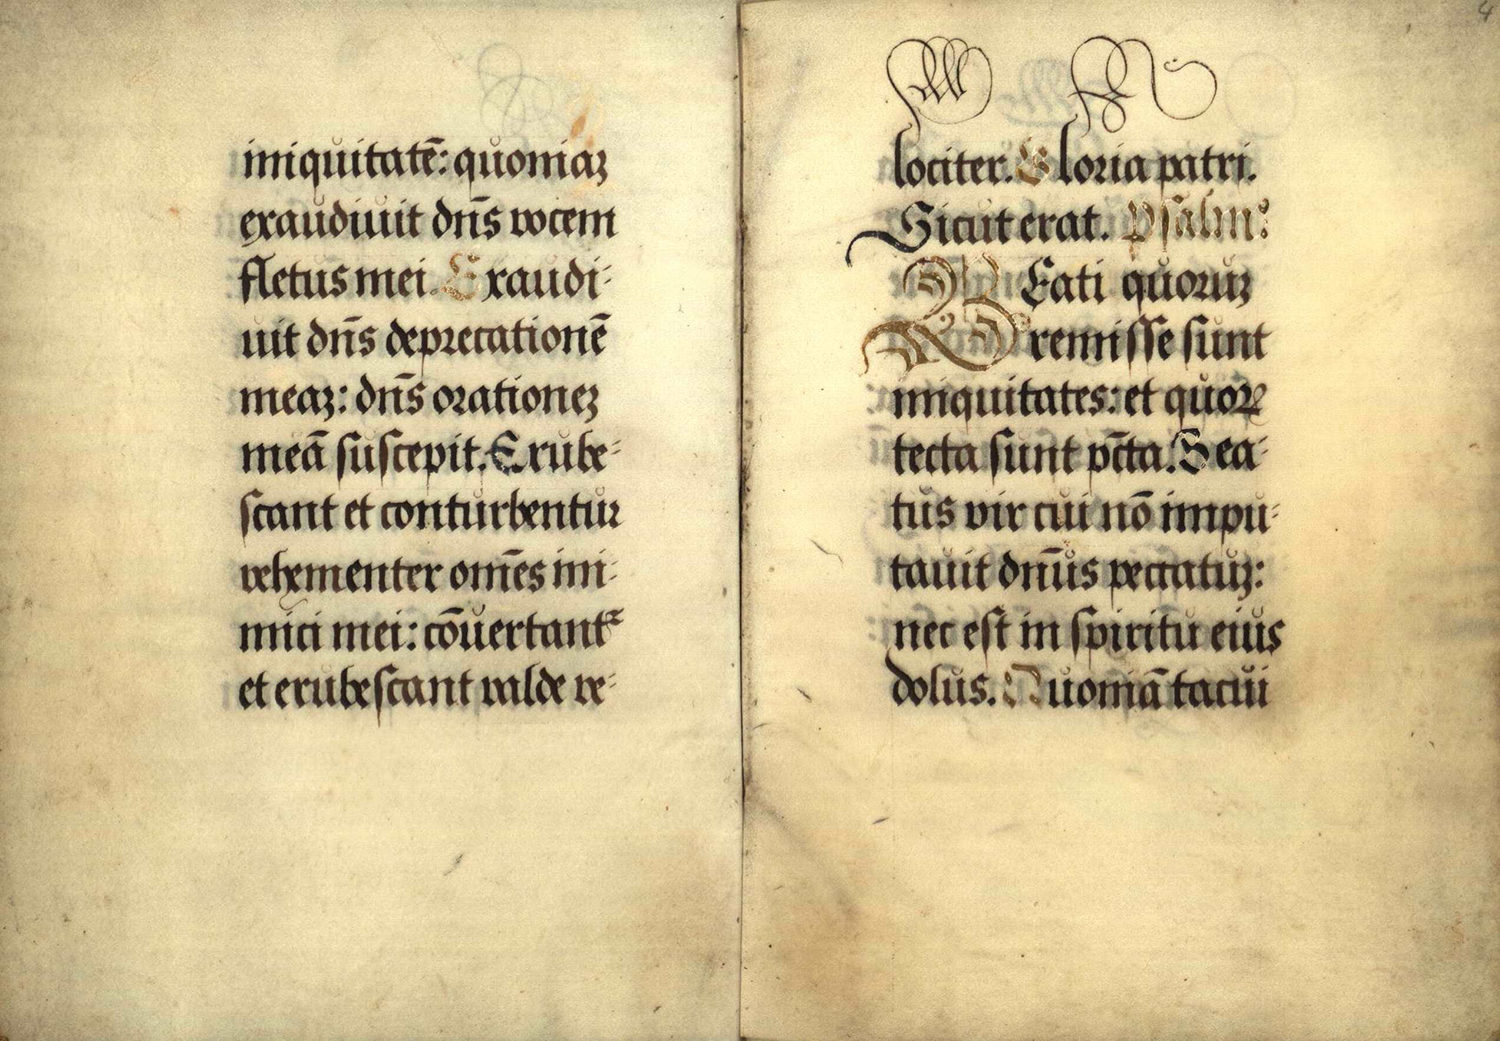 iniquitatē: quoniaꝫ
exaudiuit dn̄s vocem
fletus mei. Exaudi⸗
uit dn̄s deprecationē
meaꝫ: dn̄s orationeꝫ
meā suscepit. Erube⸗
scant et conturbentur
vehementer om̄es ini⸗
mici mei: cōuertantᷣ
et erubescant valde ve⸗
4
lociter. Gloria patri.
Sicut erat. Psalmꝰ
BEati quoruꝫ
remisse sunt
iniquitates: et quoꝝ
tecta sunt pc̄ta. Bea⸗
tus vir cui nō impu⸗
tauit dn̄us peccatuꝫ:
nec est in spiritu eius
dolus. Quoniā tacui